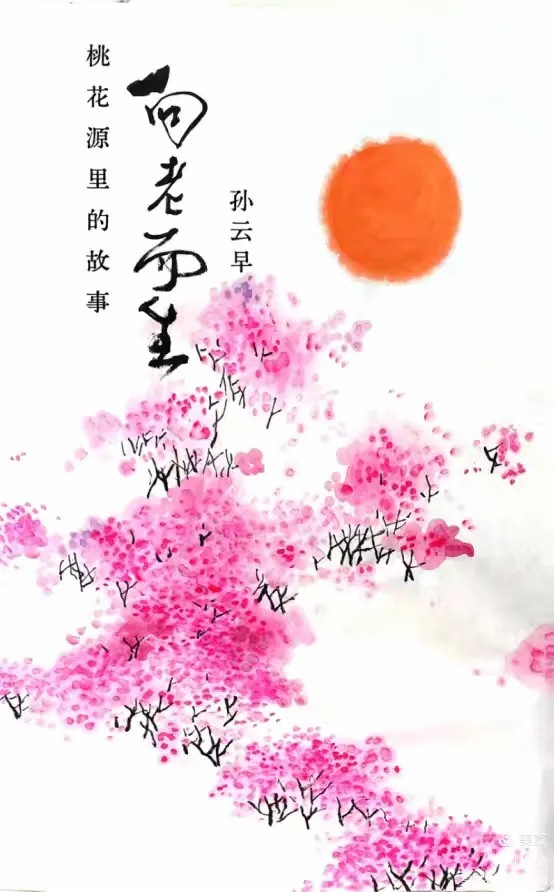 桃花源里的故事
向老而生
孙云早